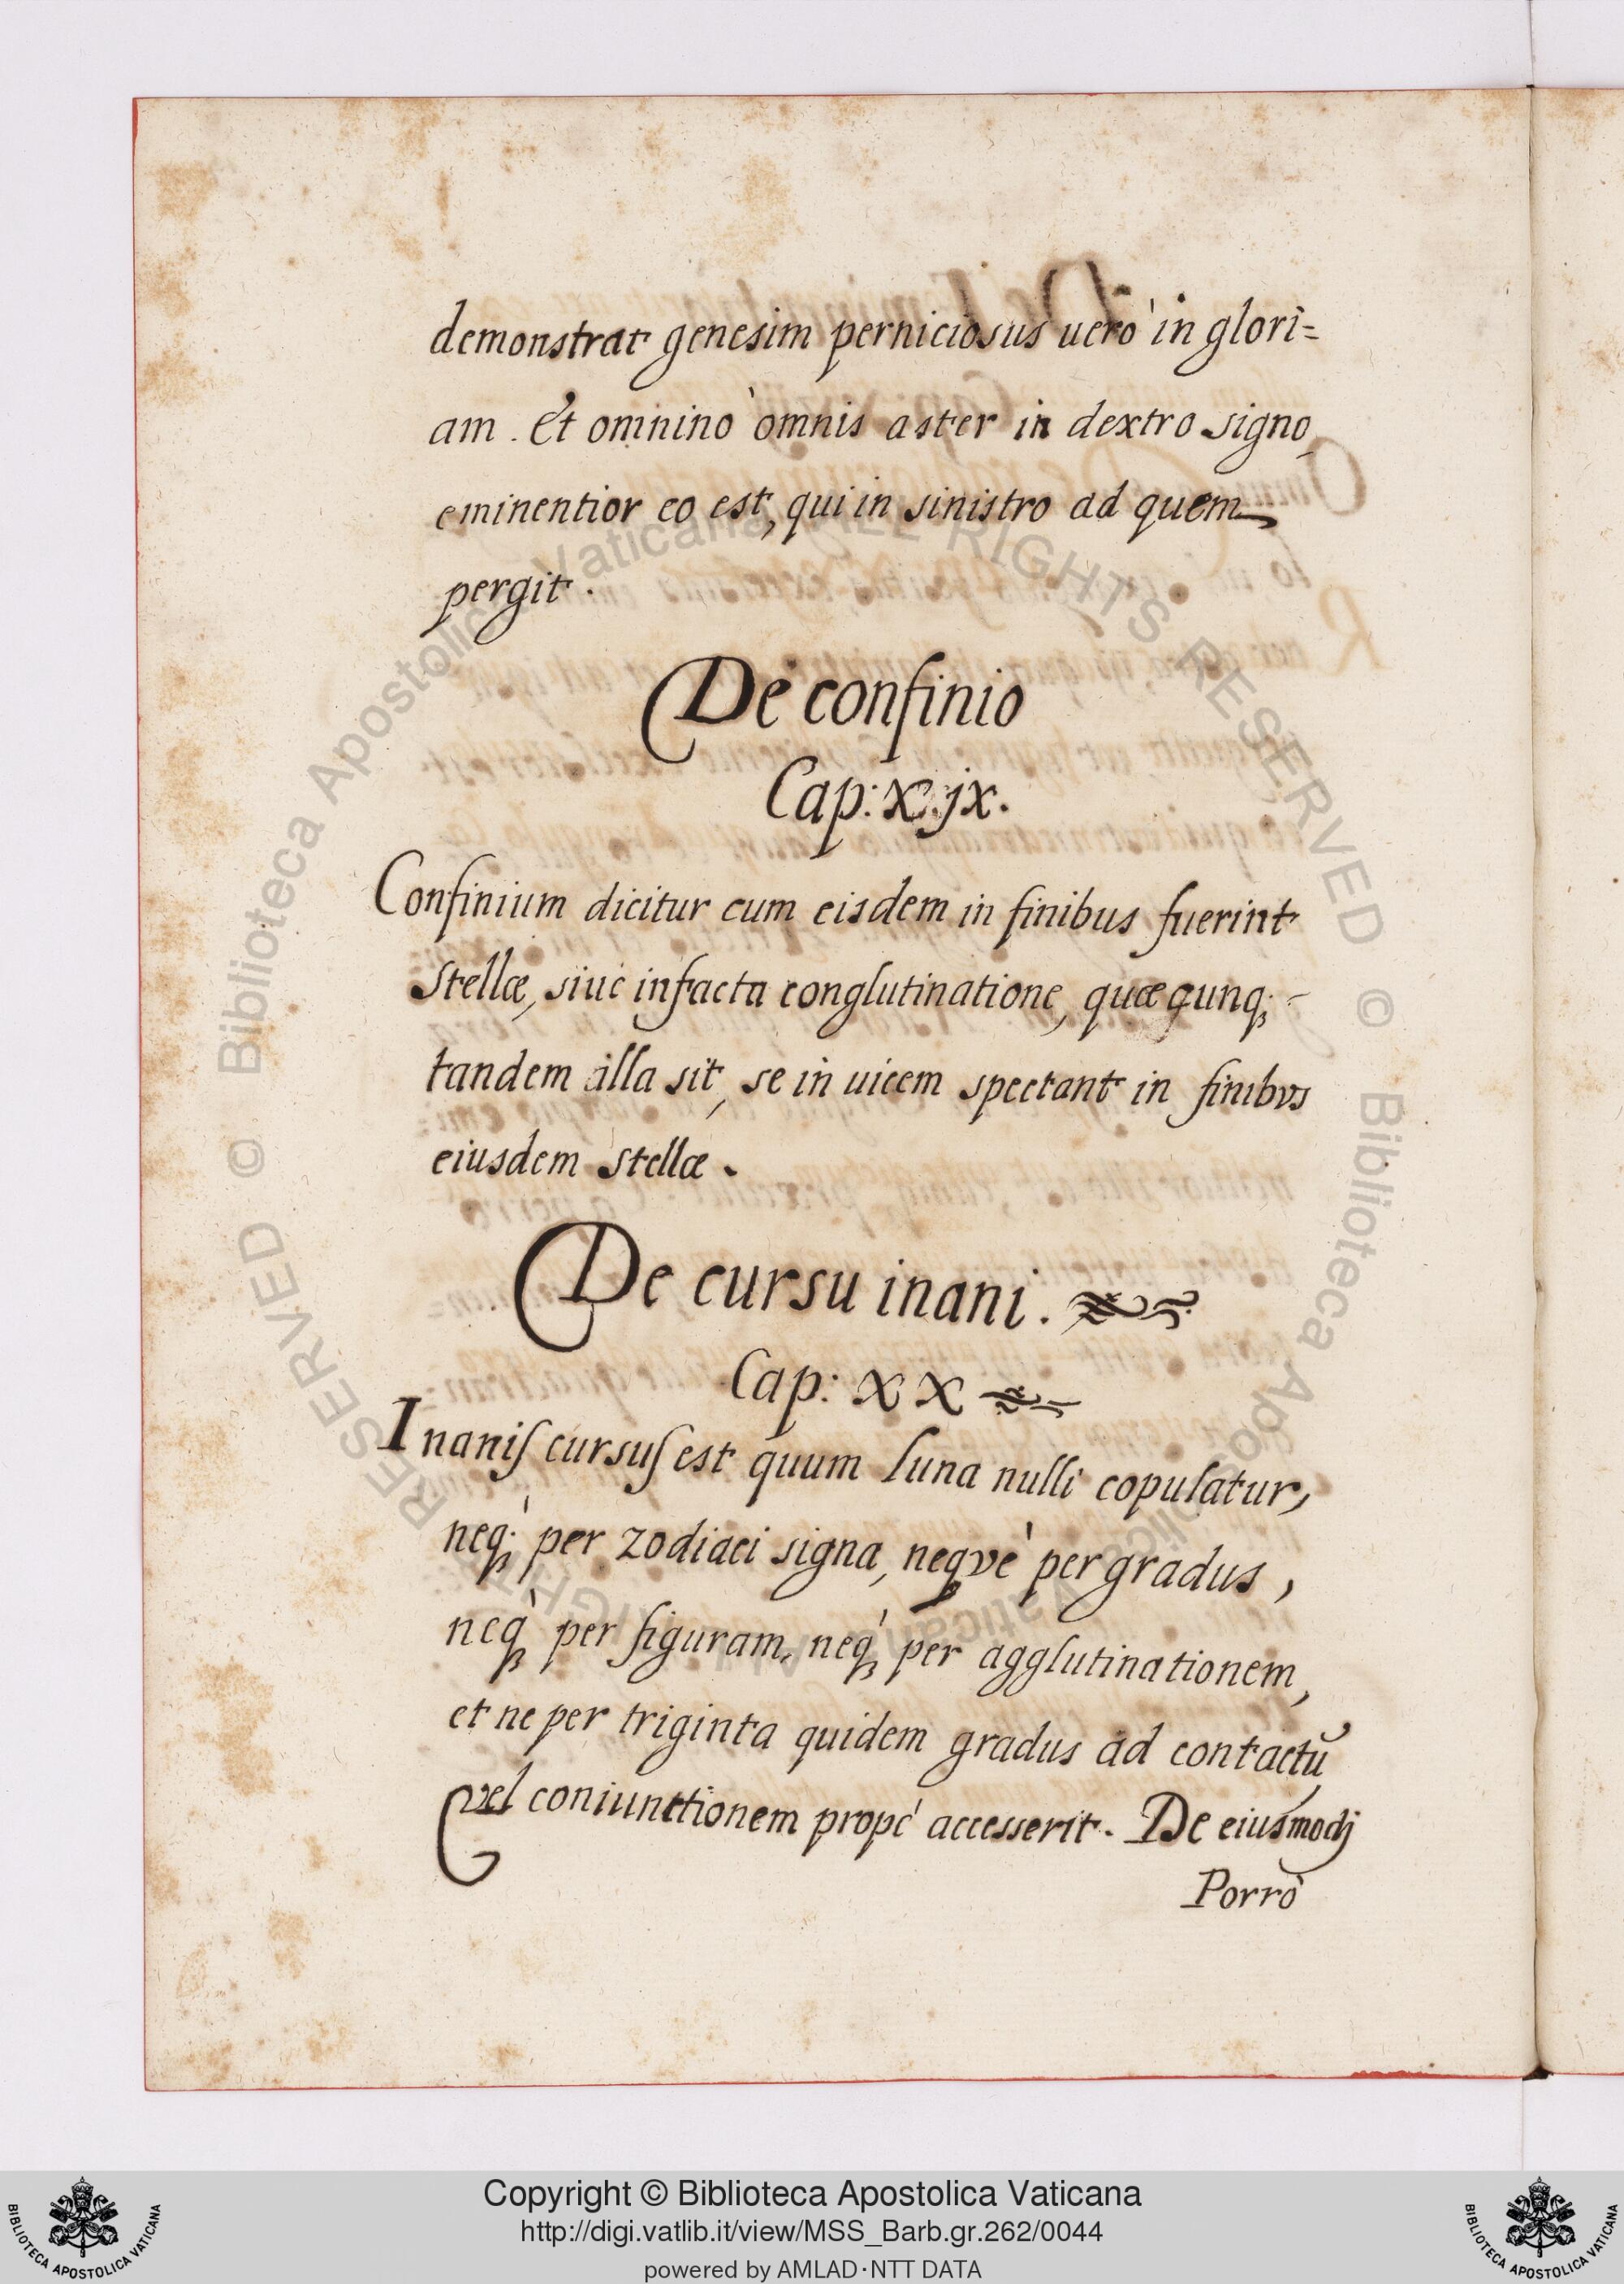 demonstrat genesim perniciosus uerò in glori=
am. Et omnino omnis aster in dextro signo,
eminentior eo est, qui in sinistro ad quem
pergit.
De confinio
Cap: x.jx.
Confinium dicitur cum eisdem in finibus fuerint
Stellæ, siue infacta conglutinatione, quæcunq;
tandem illa sit, se in uicem spectant in finibus
eiusdem Stellæ.
De cursu inani.
Cap: XX
Inanis cursus est quum Luna nulli copulatur,
neq; per zodiaci signa, neqvè per gradus,
neq; per figuram, neq; per agglutinationem,
et ne per triginta quidem gradus ad contactū
vel coniunctionem propè accesserit. De eiusmodj
Porrò
© Biblioteca Apostolica Vaticana ALL RIGHTS RESERVED
© Biblioteca Apostolica Vaticana ALL RIGHTS RESERVED
Copyright © Biblioteca Apostolica Vaticana
http://digi.vatlib.it/view/MSS_Barb.gr.262/0044
powered by AMLAD·NTT DATA
BIBLIOTECA APOSTOLICA VATICANA
BIBLIOTECA APOSTOLICA VATICANA